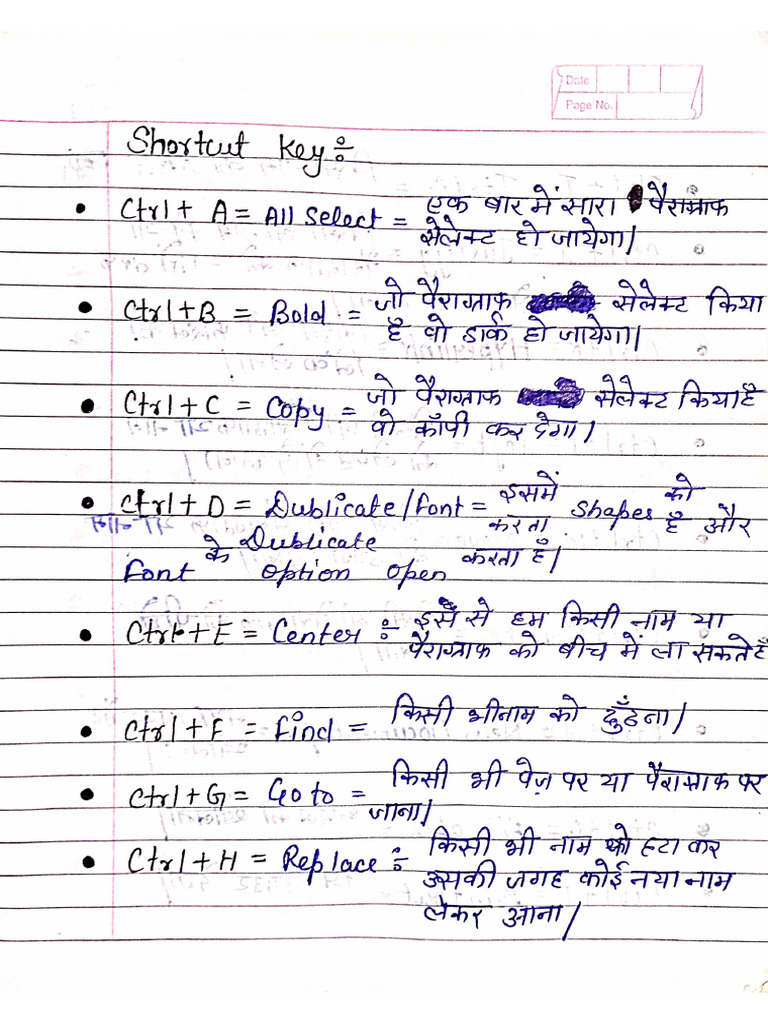 Date
Page No.
Shortcut Key÷
• Ctrl + A = All Select = एक बार में सारा पैराग्राफ
सेलेक्ट हो जायेगा।
• Ctrl + B = Bold = जो पैराग्राफ सेलेक्ट किया
है वो डार्क हो जायेगा।
• Ctrl + C = Copy = जो पैराग्राफ सेलेक्ट किया है
वो कॉपी कर देगा।
• Ctrl + D = Dublicate/font = इसमें shapes को
Dublicate करता है और
font के option open करता है।
• Ctrl + E = Center ÷ इसमें से हम किसी नाम या
पैराग्राफ को बीच में ला सकते हैं
• Ctrl + F = Find = किसी भी नाम को ढुँढना।
• Ctrl + G = Go to = किसी भी पेज़ पर या पैराग्राफ पर
जाना।
• Ctrl + H = Replace ÷ किसी भी नाम को हटा कर
उसकी जगह कोई नया नाम
लेकर आना।